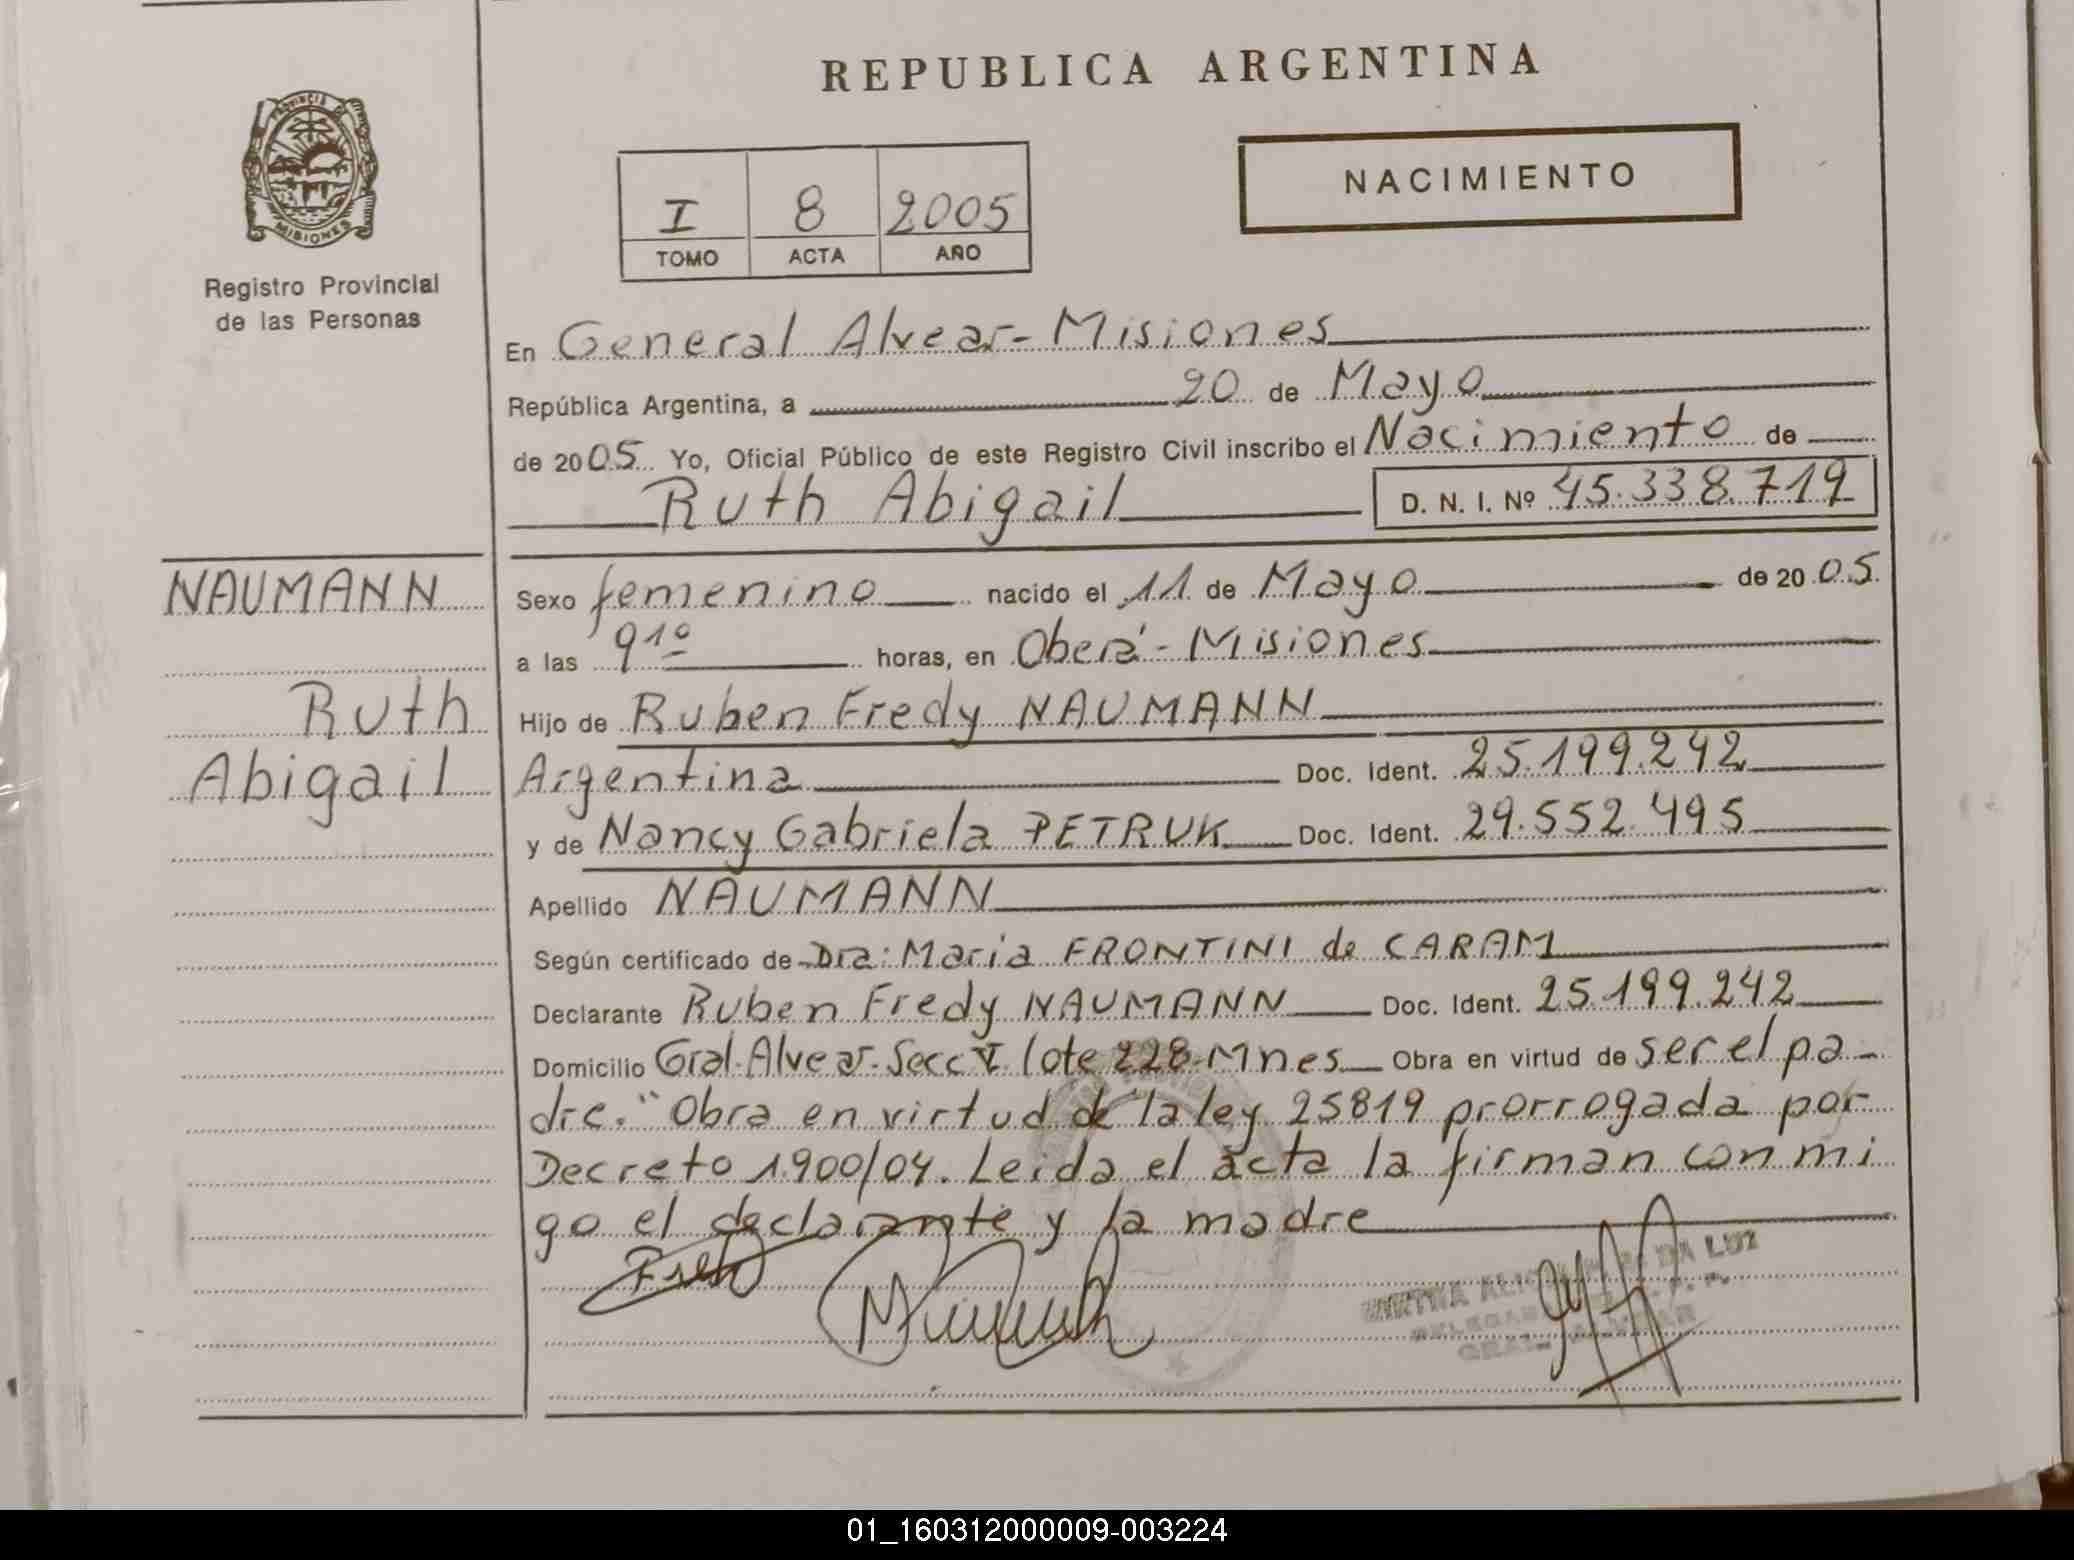 REPUBLICA ARGENTINA
PROVINCIA DE
MISIONES
Registro Provincial
de las Personas
I 8 2005
TOMO ACTA AÑO
NACIMIENTO
En General Alvear - Misiones
República Argentina, a 20 de Mayo
de 2005 Yo, Oficial Público de este Registro Civil inscribo el Nacimiento de
Ruth Abigail D. N. I. Nº 45.338.719
NAUMANN
Ruth
Abigail
Sexo femenino nacido el 11 de Mayo de 2005
a las 9 10 horas, en Oberá - Misiones
Hijo de Ruben Fredy NAUMANN
Argentina Doc. Ident. 25.199.242
y de Nancy Gabriela PETRUK Doc. Ident. 29.552.495
Apellido NAUMANN
Según certificado de Dra: Maria FRONTINI de CARAM
Declarante Ruben Fredy NAUMANN Doc. Ident. 25.199.242
Domicilio Gral. Alvear - Secc V lote 228 - Mnes Obra en virtud de ser el pa-
dre. "Obra en virtud de" la ley 25819 prorrogada por
Decreto 1.900/04. Leida el acta la firman con mi
go el declarante y la madre
DA LUZ
GRAL. ALVEAR
01_160312000009-003224